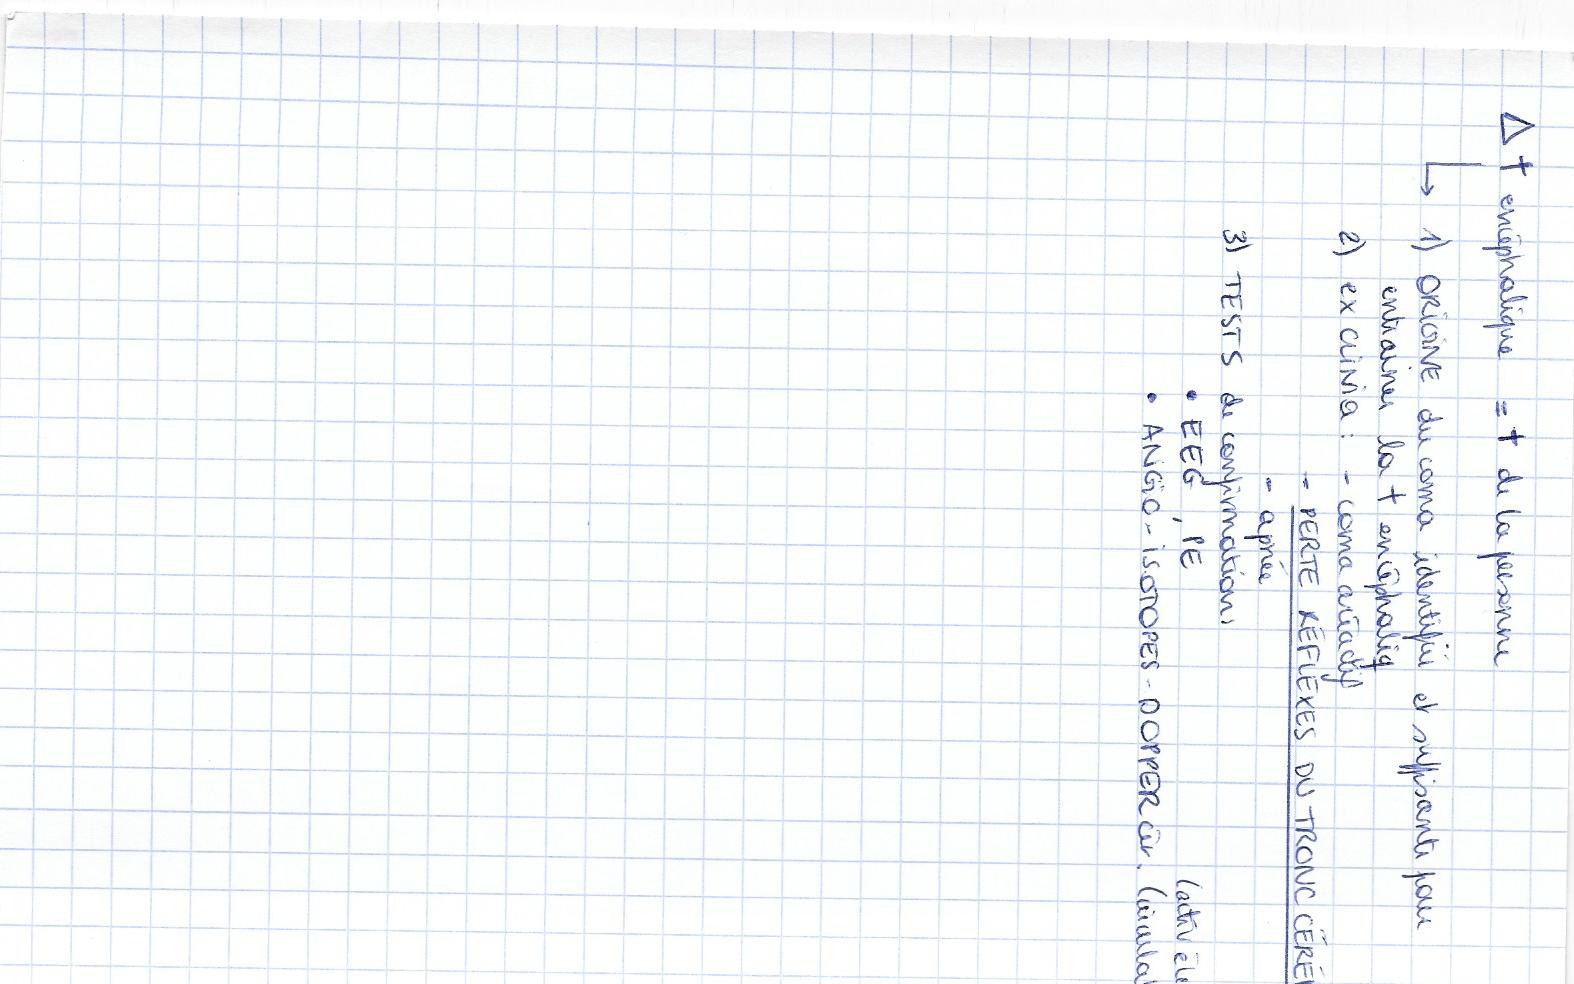 Δ † encéphalique = † de la personne
↳ 1) ORIGINE du coma identifié et suffisante pour
entrainer la † encéphaliq
2) ex cliniq : - coma aréactif
- PERTE RÉFLEXES DU TRONC CÉRÉ
- apnée
3) TESTS de confirmation:
• EEG, PE (activ éle
• ANGIO - ISOTOPES - DOPPER cér. (circulat